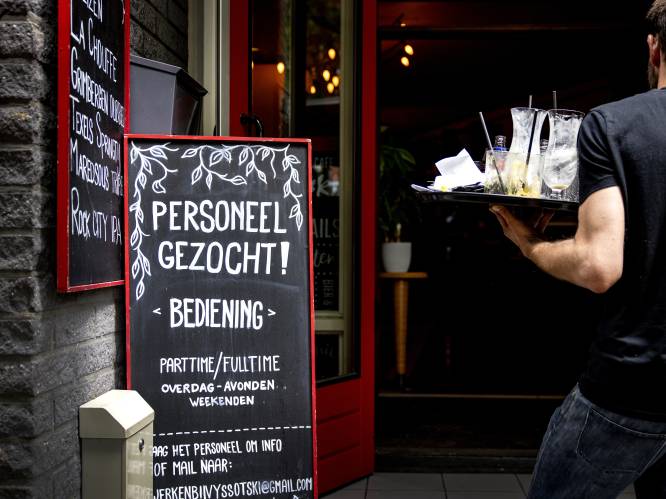 LA CHOUFFE
GRIMBERGEN
TEXELS
MAREDSOUS
ROCK CITY IPA
PERSONEEL
GEZOCHT!
< BEDIENING >
PARTTIME/FULLTIME
OVERDAG - AVONDEN
WEEKENDEN
HET PERSONEEL OM INFO
OF MAIL NAAR:
ERKENBIJVYSSOTSKI@GMAIL.COM